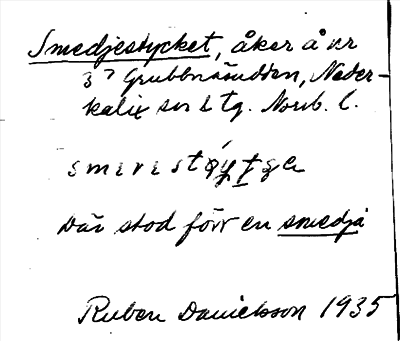 Smedjestycket, åker å nr
3⁷ Grubbnäsudden, Neder-
kalix sn o tg. Norrb. l.
Där stod förr en smedja
Ruben Danielsson 1935